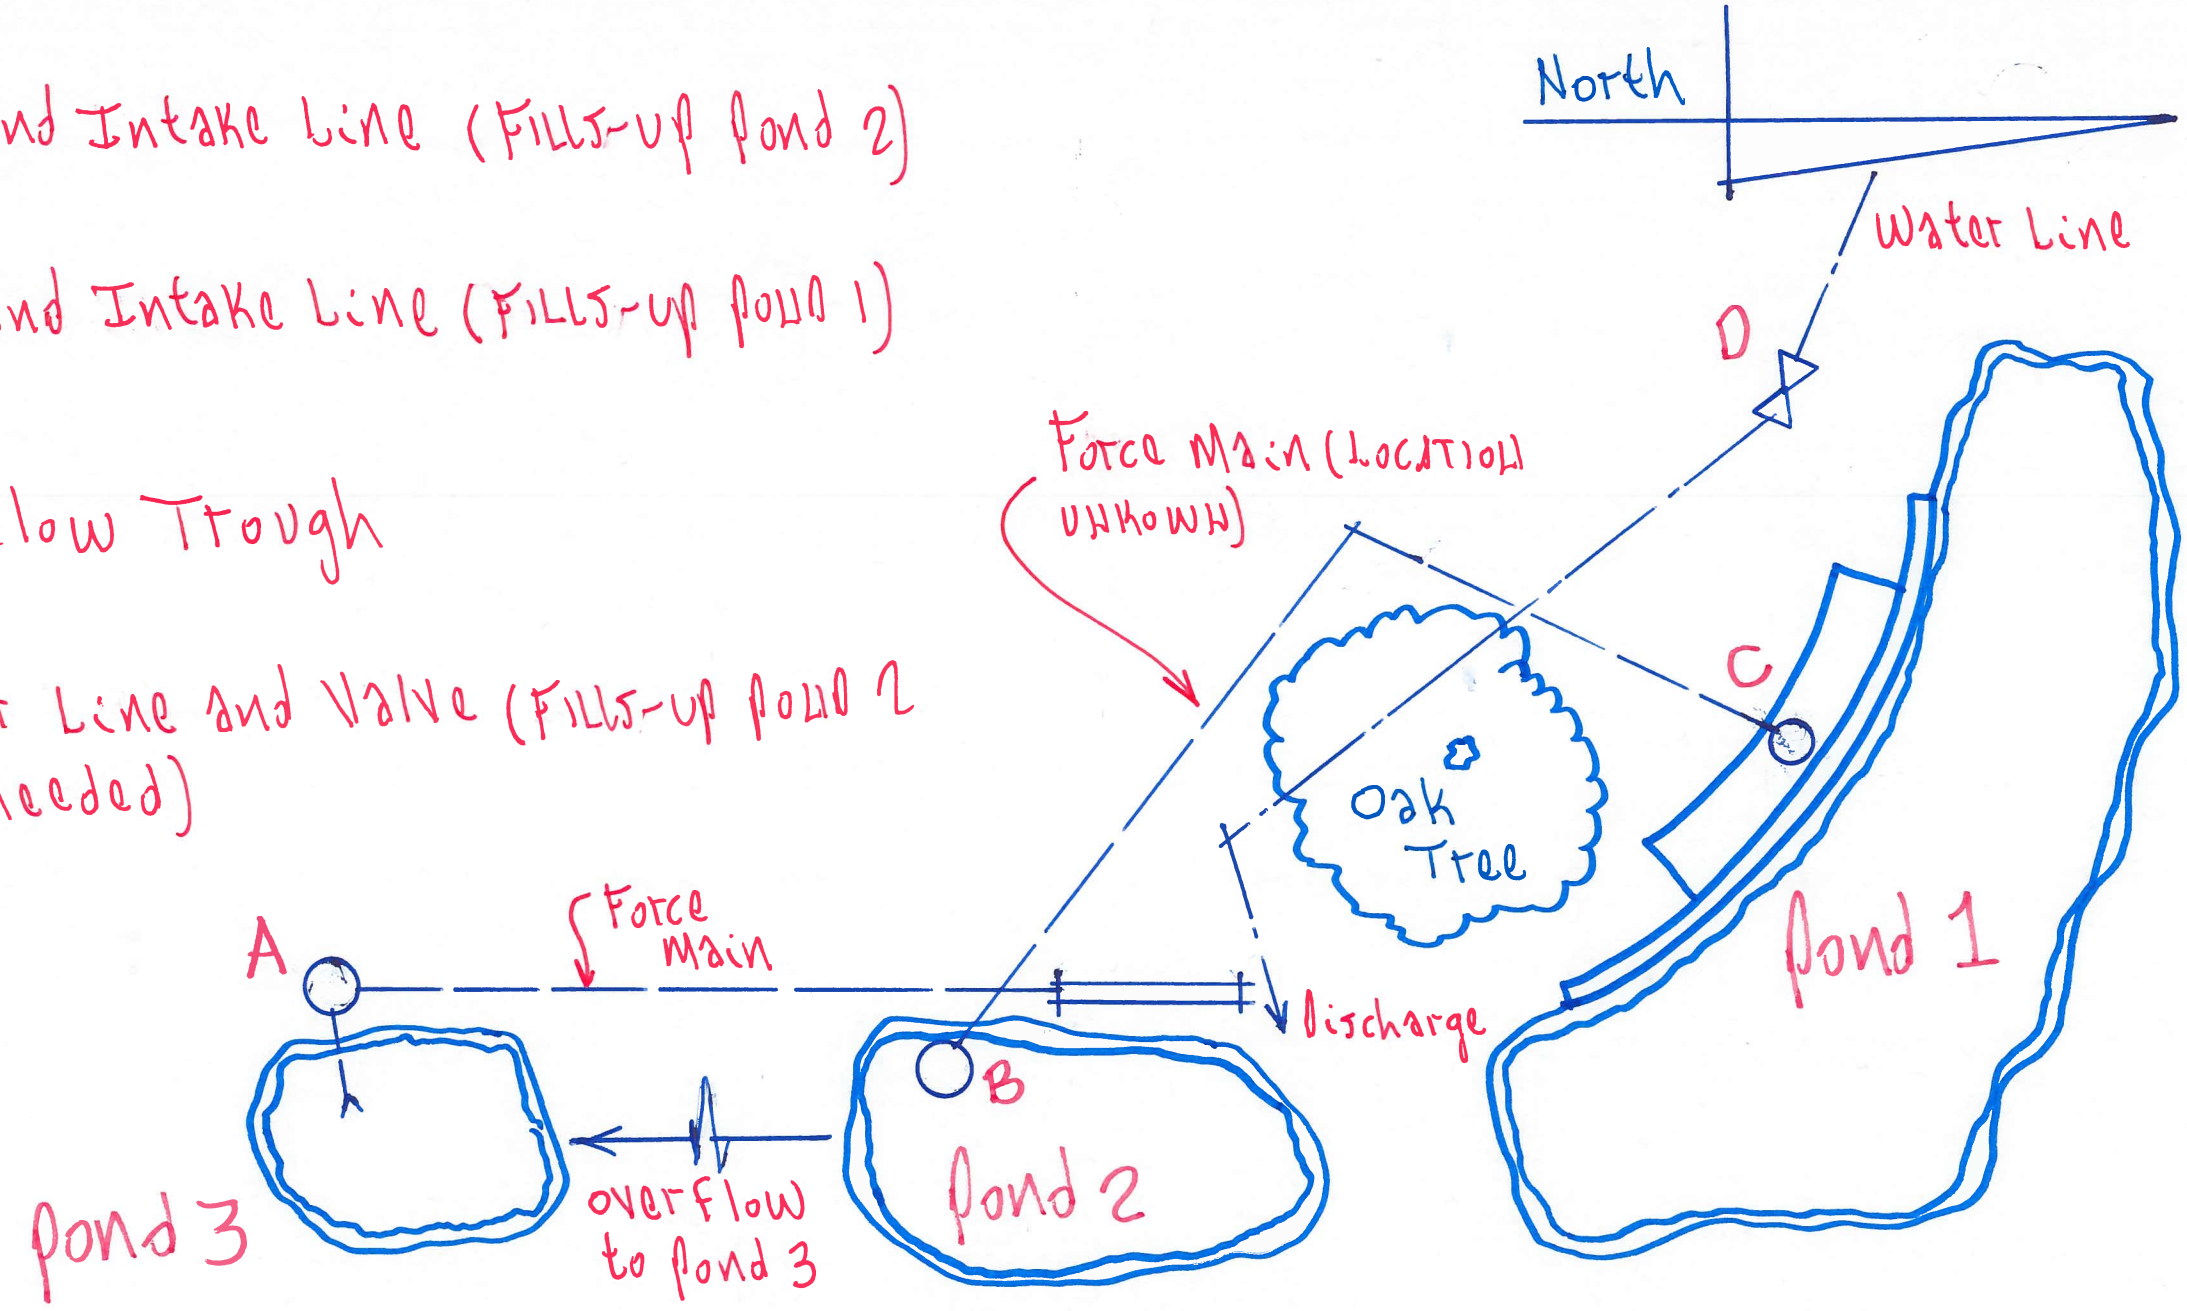 nd Intake Line (Fills-up Pond 2)
nd Intake Line (Fills-up Pond 1)
low Trough
Line and Valve (Fills-up Pond 2
eeded)
North
Water Line
D
Force Main (Location
Unkown)
C
Oak
Tree
A
Force
Main
Discharge
Pond 1
B
Pond 2
overflow
to Pond 3
Pond 3